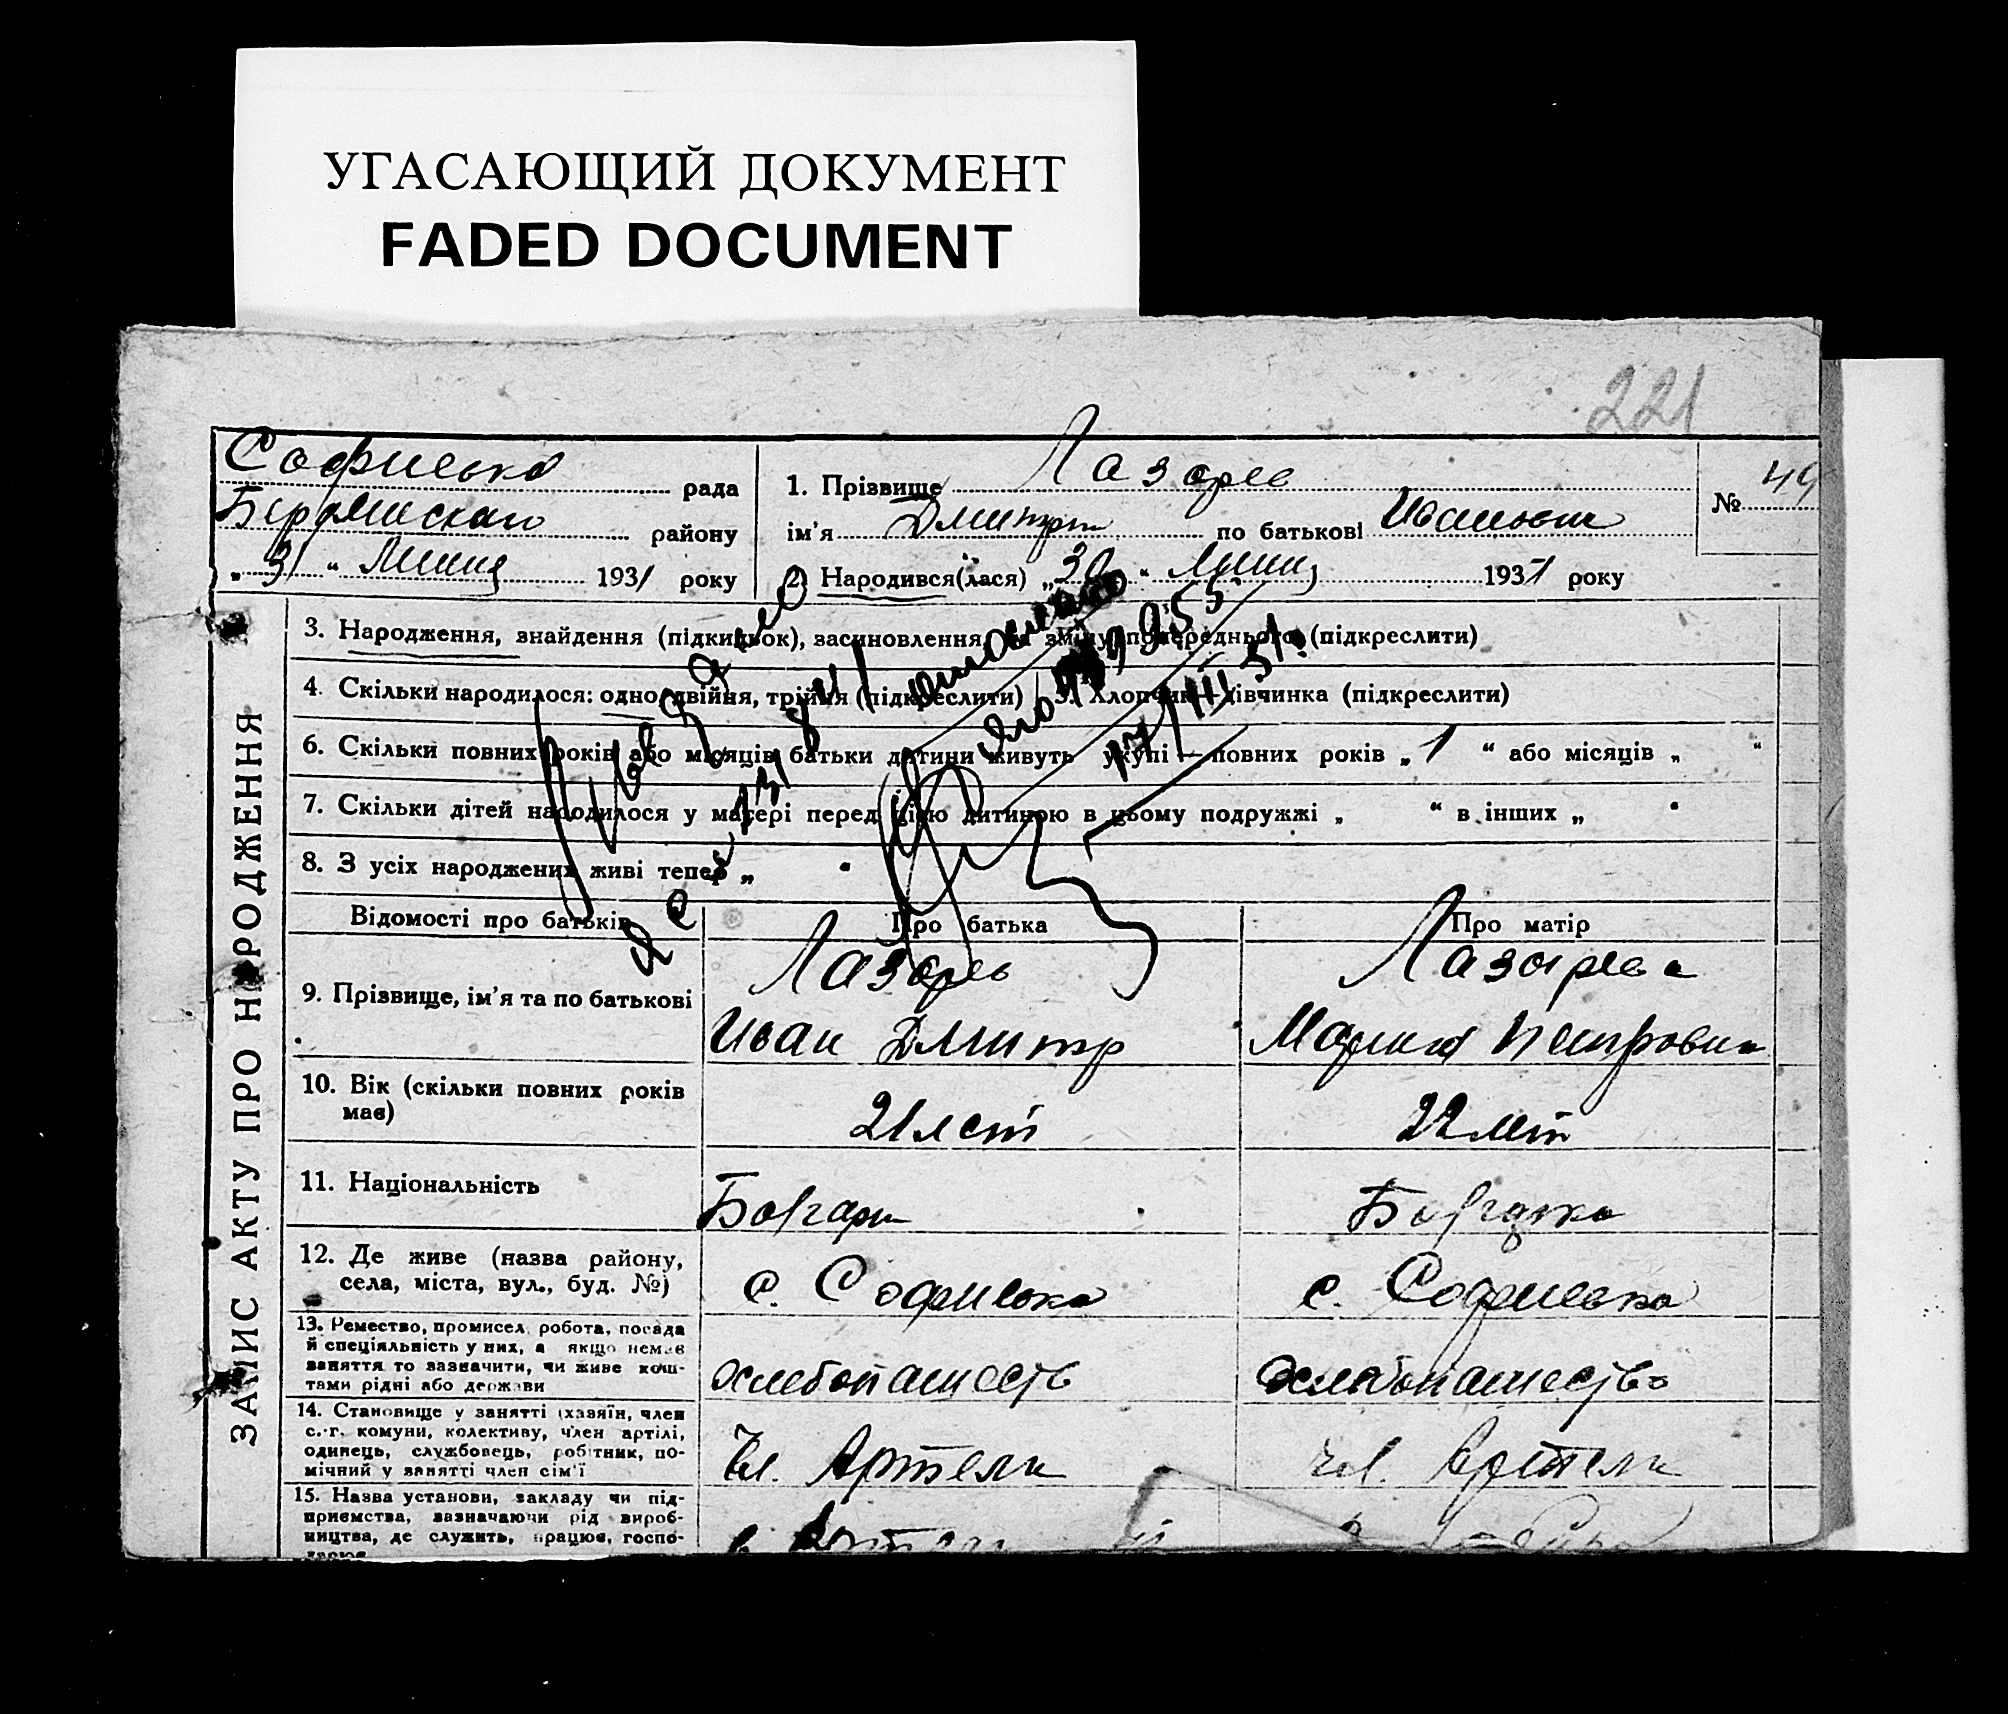 УГАСАЮЩИЙ ДОКУМЕНТ
FADED DOCUMENT
221
ЗАПИС АКТУ ПРО НАРОДЖЕННЯ
Софиевка рада
району
„ 31 “ Липня 1931 року
1. Прізвище Лазарев
ім'я Дмитрий по батькові Иванович
2. Народився(лася) „ 30 “ Липня 1931 року
№ 49
3. Народження, знайдення (підкидьок), засиновлення, зміну попереднього (підкреслити)
4. Скільки народилося: одно, двійня, трійня (підкреслити) 5. Хлопчик — дівчинка (підкреслити)
6. Скільки повних років або місяців батьки дитини живуть укупі — повних років „ 1 “ або місяців „ “
7. Скільки дітей народилося у матері перед цією дитиною в цьому подружжі „ “ в інших „ “
8. З усіх народжених живі тепер „ “
Відомості про батьків Про батька Про матір
9. Прізвище, ім'я та по батькові Лазарев Лазарева
Иван Дмитр Мария Петровна
10. Вік (скільки повних років має) 21 лет 22 лет
11. Національність Болгарин Болгарка
12. Де живе (назва району, села, міста, вул., буд. №) с. Софиевка с. Софиевка
13. Ремество, промисел, робота, посада
й спеціяльність у них, а якщо немає
заняття то зазначити, чи живе кош-
тами рідні або держави
хлебопашеств хлебопашество
14. Становище у занятті (хазяїн, член
с.-г. комуни, колективу, член артілі,
одинець, службовець, робітник, по-
мічний у занятті член сім'ї
Чл. Артели чл. Артели
15. Назва установи, закладу чи під-
приємства, зазначаючи рід вироб-
ництва, де служить, працює, госпо-